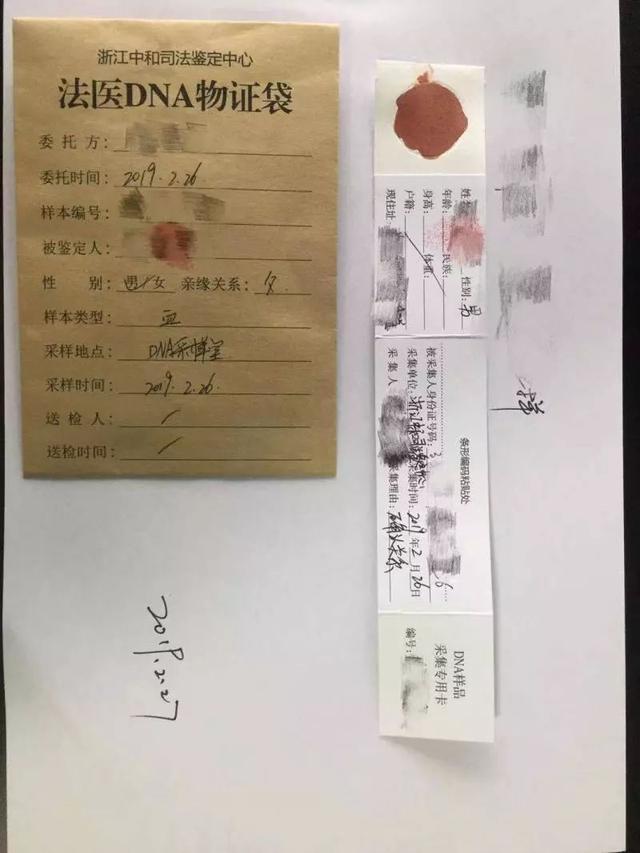 浙江中和司法鉴定中心
法医DNA物证袋
委托方：
委托时间：2019.2.26
样本编号：
被鉴定人：
性 别：男/女 亲缘关系：父
样本类型：血
采样地点：DNA采样室
采样时间：2019.2.26
送检人：/
送检时间：/
2019.2.27
姓名 性别：男
年龄： 民族：
身高： 体重：
户籍：
现住址：
条形编码粘贴处
被采集人身份证号码：3 6
采集单位： 采集时间：2019年2月26日
采集人 采集理由：确认关系
DNA样品
采集专用卡
编号：